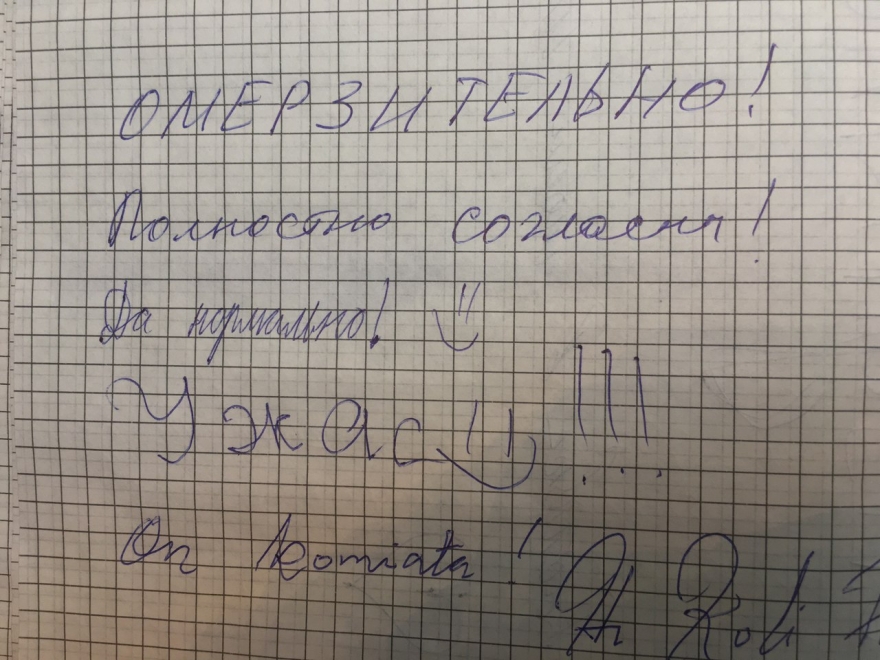 ОМЕРЗИТЕЛЬНО!
Полностю согласен!
Да нормально!
Ужас!!!
On !
Roli